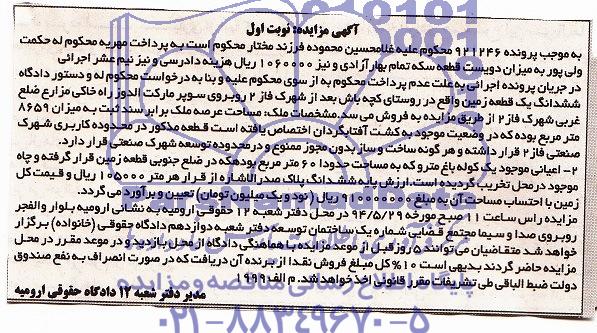 آگهی مزایده: نوبت اول
به موجب پرونده ۹۲۱۲۴۶ محکوم علیه غلامحسین محموده فرزند مختار محکوم است به پرداخت مهریه محکوم له حکمت
ولی پور به میزان دویست قطعه سکه تمام بهار آزادی و نیز ۱۰۶۰۰۰۰ ریال هزینه دادرسی و نیز نیم عشر اجرائی
در جریان پرونده اجرائی به علت عدم پرداخت محکوم به از سوی محکوم علیه و بنا به درخواست محکوم له و دستور دادگاه
ششدانگ یک قطعه زمین واقع در روستای کچه باش بعد از شهرک فاز ۲ روبروی سوپر مارکت الدوز راه خاکی مزارع ضلع
غربی شهرک فاز ۲ از طریق مزایده به فروش می رسد. مشخصات ملک: مساحت عرصه ملک برابر سند ثبت به میزان ۸۶۵۹
متر مربع بوده که در وضعیت موجود به کشت آفتابگردان اختصاص یافته است قطعه مذکور در محدوده کاربری شهرک
صنعتی فاز ۲ قرار داشته و هر گونه ساخت وساز بدون مجوز ممنوع و در محدوده توسعه شهرک صنعتی قرار دارد.
۲- اعیانی موجود یک کوله باغ مترو که به مساحت حدودا ۶۰ متر مربع بوده که در ضلع جنوبی قطعه زمین قرار گرفته و چاه
موجود در محل تخریب گردیده است. ارزش پایه ششدانگ پلاک صدرالاشاره از قرار هر متر ۱۰۵۰۰۰ ریال و قیمت کل
زمین با احتساب مساحت آن به مبلغ ۹۱۰۰۰۰۰۰۰ ریال (نود و یک میلیون تومان) تعیین و برآورد می گردد.
مزایده راس ساعت ۱۱ صبح مورخه ۹۴/۵/۲۹ در محل دفتر شعبه ۱۲ حقوقی ارومیه به نشانی ارومیه بلوار والفجر
روبروی صدا و سیما مجتمع قضایی شماره یک ساختمان توسعه دفتر شعبه دوازدهم دادگاه حقوقی (خانواده) برگزار
خواهد شد متقاضیان می توانند ۵ روز قبل از موعد مزایده با هماهنگی دادگاه از محل بازدید و در موعد مقرر در محل
مزایده حاضر گردند بدیهی است ۱۰% کل مبلغ فروش نقدا از برنده آن دریافت که در صورت انصراف به نفع صندوق
دولت ضبط الباقی طی تشریفات مقرر قانونی اخذ خواهد شد. م الف ۱۹۹۹
مدیر دفتر شعبه ۱۲ دادگاه حقوقی ارومیه
پایگاه اطلاع رسانی مناقصه و مزایده
۰۲۱-۸۸۳۴۹۶۷۰-۵